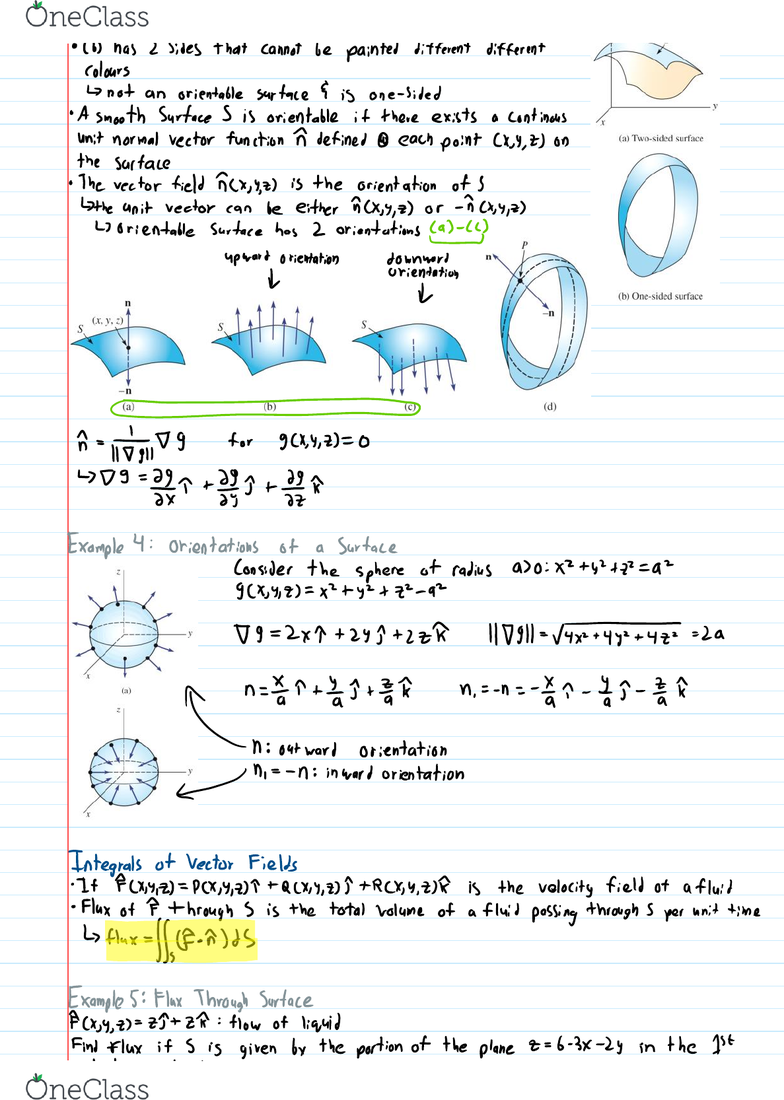 OneClass
• (b) has 2 sides that cannot be painted different different
colours
↳ not an orientable surface & is one-sided
• A smooth Surface S is orientable if there exists a continous
unit normal vector function n̂ defined @ each point (x,y,z) on
the surface
• The vector field n̂(x,y,z) is the orientation of S
↳ the unit vector can be either n̂(x,y,z) or -n̂(x,y,z)
↳ orientable surface has 2 orientations (a)-(c)
x
y
(a) Two-sided surface
(b) One-sided surface
upward orientation
downward
orientation
n
(x, y, z)
S
-n
(a)
S
(b)
S
(c)
n
P
-n
(d)
n̂ = 1/||∇g|| ∇g for g(x,y,z)=0
↳ ∇g = ∂g/∂x î + ∂g/∂y ĵ + ∂g/∂z k̂
Example 4: Orientations of a Surface
Consider the sphere of radius a>0: x²+y²+z²=a²
g(x,y,z)=x²+y²+z²-a²
∇g=2xî+2yĵ+2zk̂ ||∇g||=√4x²+4y²+4z² =2a
n=x/a î+y/a ĵ+z/a k̂ n₁=-n=-x/a î-y/a ĵ-z/a k̂
z
y
x
(a)
z
y
x
n: outward orientation
n₁=-n: inward orientation
Integrals of Vector Fields
• If F̂(x,y,z)=P(x,y,z)î+Q(x,y,z)ĵ+R(x,y,z)k̂ is the velocity field of a fluid
• Flux of F̂ through S is the total volume of a fluid passing through S per unit time
↳ flux=∬s(F̂·n̂)dS
Example 5: Flux Through Surface
F̂(x,y,z)=zĵ+zk̂: flow of liquid
Find flux if S is given by the portion of the plane z=6-3x-2y in the 1st
OneClass